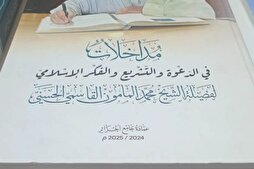 مداخلات
في الدعوة والتشريع والفكر الإسلامي
لفضيلة الشيخ محمد المأمون القاسمي الحسني
عمادة جامع الجزائر
2024 / 2025 م